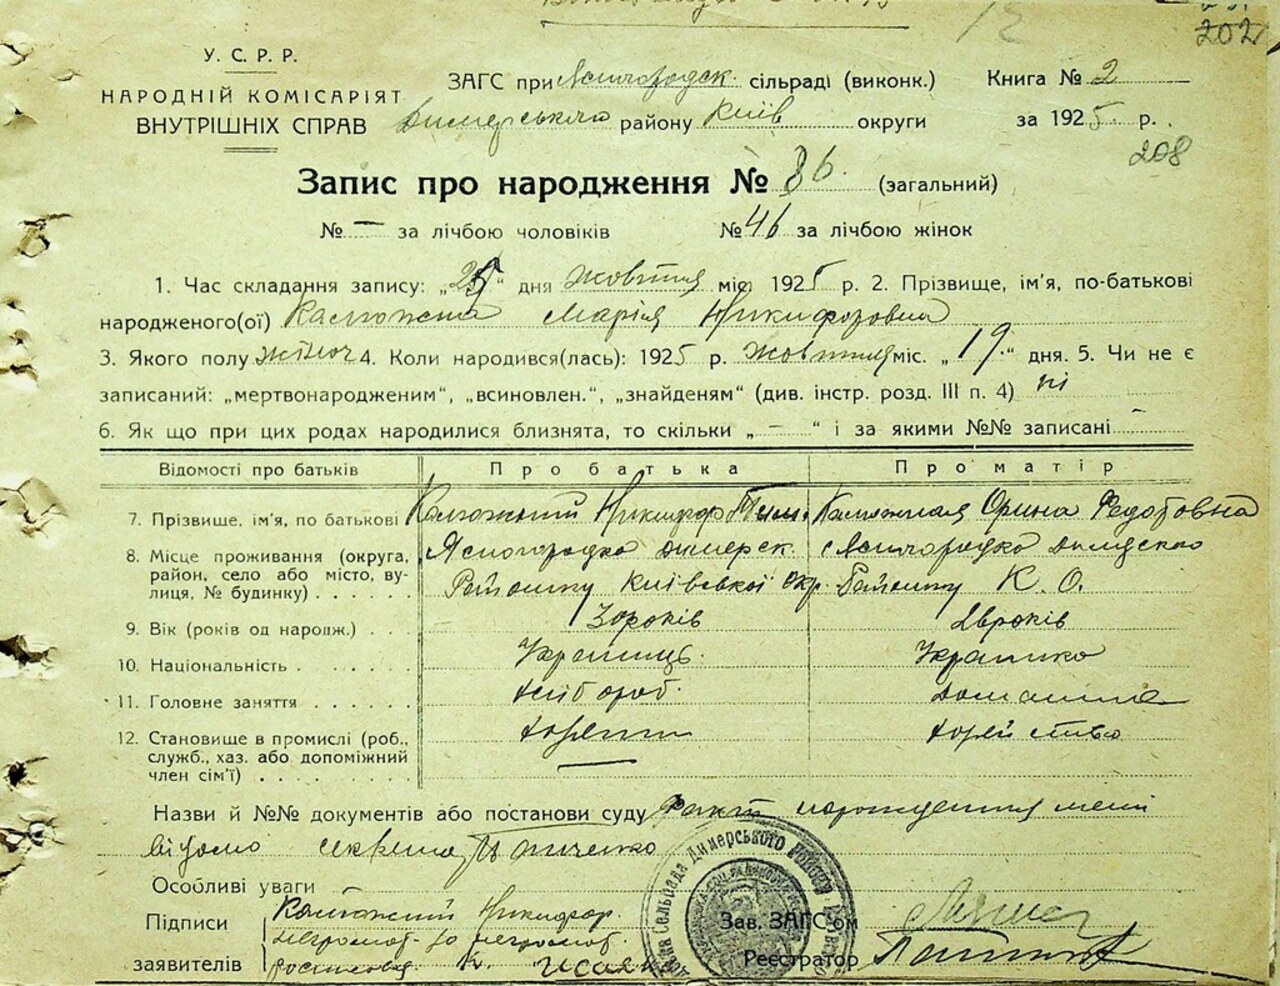 202
У. С. Р. Р.
НАРОДНІЙ КОМІСАРІЯТ
ВНУТРІШНІХ СПРАВ
ЗАГС при Ясногородск. сільраді (виконк.) Книга № 2
Димерського району Київ округи за 1925 р.
208
Запис про народження № 86. (загальний)
№ — за лічбою чоловіків № 46 за лічбою жінок
1. Час складання запису: „ “ дня жовтня міс. 1925 р. 2. Прізвище, ім'я, по-батькові
народженого(ої) Калюжна Марія Никифоровна
3. Якого полу жіноч 4. Коли народився(лась): 1925 р. жовтня міс. „19.“ дня. 5. Чи не є
записаний: „мертвонародженим“, „всиновлен.“, „знайденям“ (див. інстр. розд. III п. 4) ні
6. Як що при цих родах народилися близнята, то скільки „ — “ і за якими №№ записані —
Відомості про батьків Про батька Про матір
7. Прізвище, ім'я, по батькові Калюжний Никифор Тим. Калюжная Орина Федотовна
8. Місце проживання (округа, район, село або місто, вулиця, № будинку) Ясногородка димерск. с Ясногородка
Району Київської окр. Району К. О.
9. Вік (років од народж.) років років
10. Національність Українець. Українка
11. Головне заняття хлібороб. домашне
12. Становище в промислі (роб., служб., хаз. або допоміжний член сім'ї)
Назви й №№ документів або постанови суду Факт нарождення мені
відомо
Особливі уваги
Підписи заявителів Калюжний Никифор.
неграмот. неграмот.
Зав. ЗАГС-ом
Реєстратор
Сельрада Димерського району